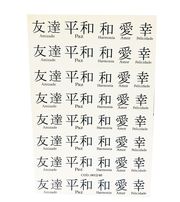 友達 平和 和 愛 幸
Amizade Paz Harmonia Amor Felicidade
友達 平和 和 愛 幸
Amizade Paz Harmonia Amor Felicidade
友達 平和 和 愛 幸
Amizade Paz Harmonia Amor Felicidade
友達 平和 和 愛 幸
Amizade Paz Harmonia Amor Felicidade
友達 平和 和 愛 幸
Amizade Paz Harmonia Amor Felicidade
友達 平和 和 愛 幸
Amizade Paz Harmonia Amor Felicidade
友達 平和 和 愛 幸
Amizade Paz Harmonia Amor Felicidade
友達 平和 和 愛 幸
Amizade Paz Harmonia Amor Felicidade
COD.